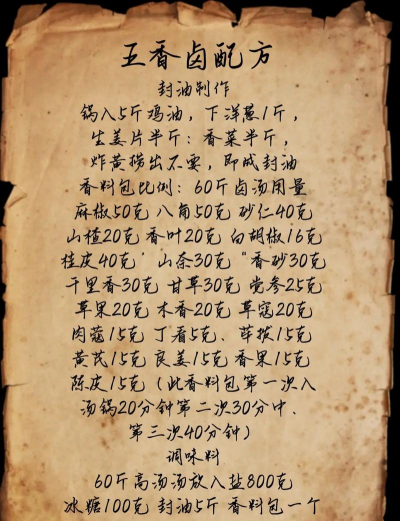 五香卤配方
封油制作
锅入5斤鸡油，下洋葱1斤，
生姜片半斤：香菜半斤，
炸黄捞出不要，即成封油
香料包比例：60斤卤汤用量
麻椒50克 八角50克 砂仁40克
山楂20克 香叶20克 白胡椒16克
桂皮40克’ 山奈30克 “香砂30克
千里香30克 甘草30克 党参25克
草果20克 木香20克 草寇20克
肉蔻15克 丁香5克、荜拔15克
黄芪15克 良姜15克 香果15克
陈皮15克（此香料包第一次入
汤锅20分钟第二次30分中、
第三次40分钟）
调味料
60斤高汤汤放入盐800克
冰糖100克 封油5斤 香料包一个